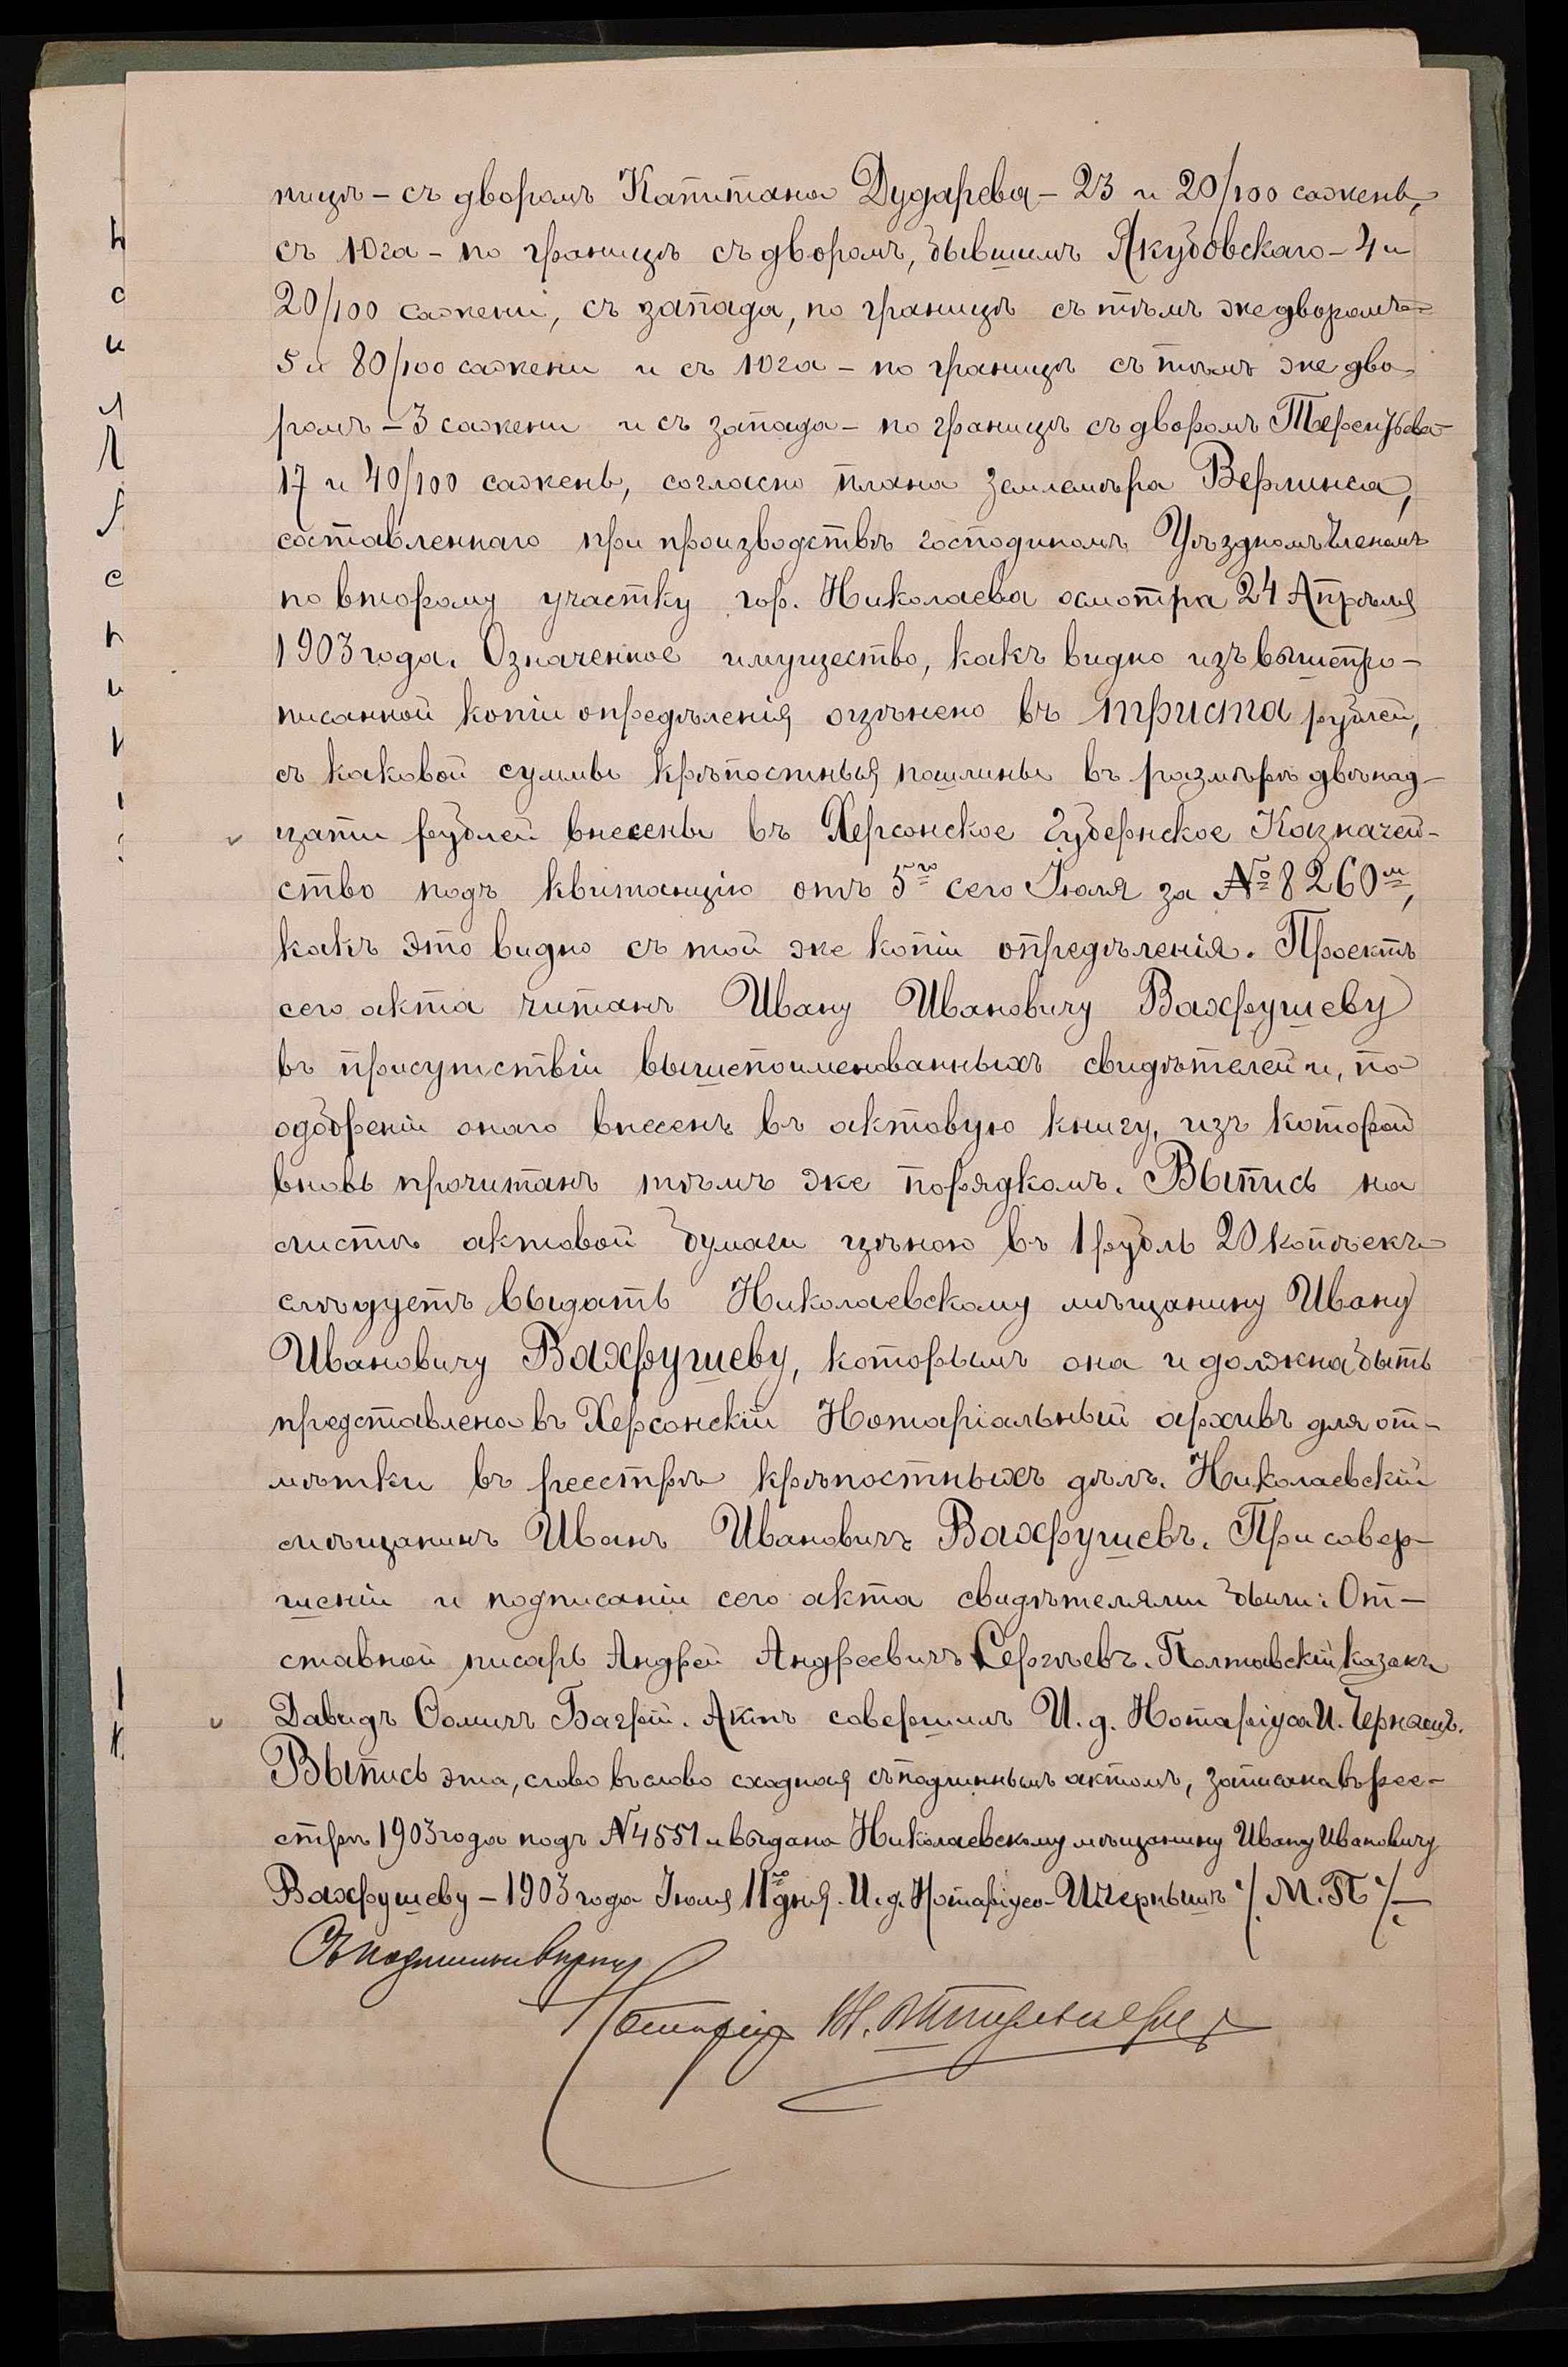 ницѣ – съ дворомъ Капитана Дударева – 23 и 20/100 сажень,
съ юга – по границѣ съ дворомъ, бывшимъ Якубовскаго – 4 и
20/100 сажени, съ запада, по границѣ съ тѣмъ же дворомъ –
5 и 80/100 сажени и съ юга – по границѣ съ тѣмъ же дво-
ромъ – 3 сажени и съ запада – по границѣ съ дворомъ
17 и 40/100 сажень, согласно плана землемѣра Верлинса,
составленнаго при производствѣ господиномъ Уѣзднымъ Членомъ
по второму участку гор. Николаева осмотра 24 Апрѣля
1903 года. Означенное имущество, какъ видно изъ вышепро-
писанной копіи опредѣленія оцѣнено въ триста рублей,
съ каковой суммы крѣпостныя пошлины въ размѣрѣ двѣнад-
цати рублей внесены въ Херсонское Губернское Казначей-
ство подъ квитанцію отъ 5го сего Іюля за № 8260м,
какъ это видно съ той же копіи опредѣленія. Проектъ
сего акта читанъ Ивану Ивановичу Вахрушеву
въ присутствіи вышепоименованныхъ свидѣтелей и, по
одобреніи онаго внесенъ въ актовую книгу, изъ которой
вновь прочитанъ тѣмъ же порядкомъ. Выпись на
листѣ актовой бумаги цѣною въ 1 рубль 20 копѣекъ
слѣдуетъ выдать Николаевскому мѣщанину Ивану
Ивановичу Вахрушеву, которымъ она и должна быть
представлена въ Херсонскій Нотаріальный архивъ для от-
мѣтки въ реестрѣ крѣпостныхъ дѣлъ. Николаевскій
мѣщанинъ Иванъ Ивановичъ Вахрушевъ. При совер-
шеніи и подписаніи сего акта свидѣтелями были: От-
ставной писарь Андрей Андреевичъ Сергѣевъ. Полтавскій казакъ
Давидъ Ѳомичъ Багрій. Актъ совершилъ И. д. Нотаріуса И. Чернышъ.
Выпись эта, слово въ слово сходная съ подлиннымъ актомъ, записана въ рее-
стрѣ 1903 года подъ № 4551 и выдана Николаевскому мѣщанину Ивану Ивановичу
Вахрушеву – 1903 года Іюля 11го дня. И. д. Нотаріуса – И. Чернышъ ./. М. П ./.
Съ подлиннымъ вѣрно
Нотаріусъ